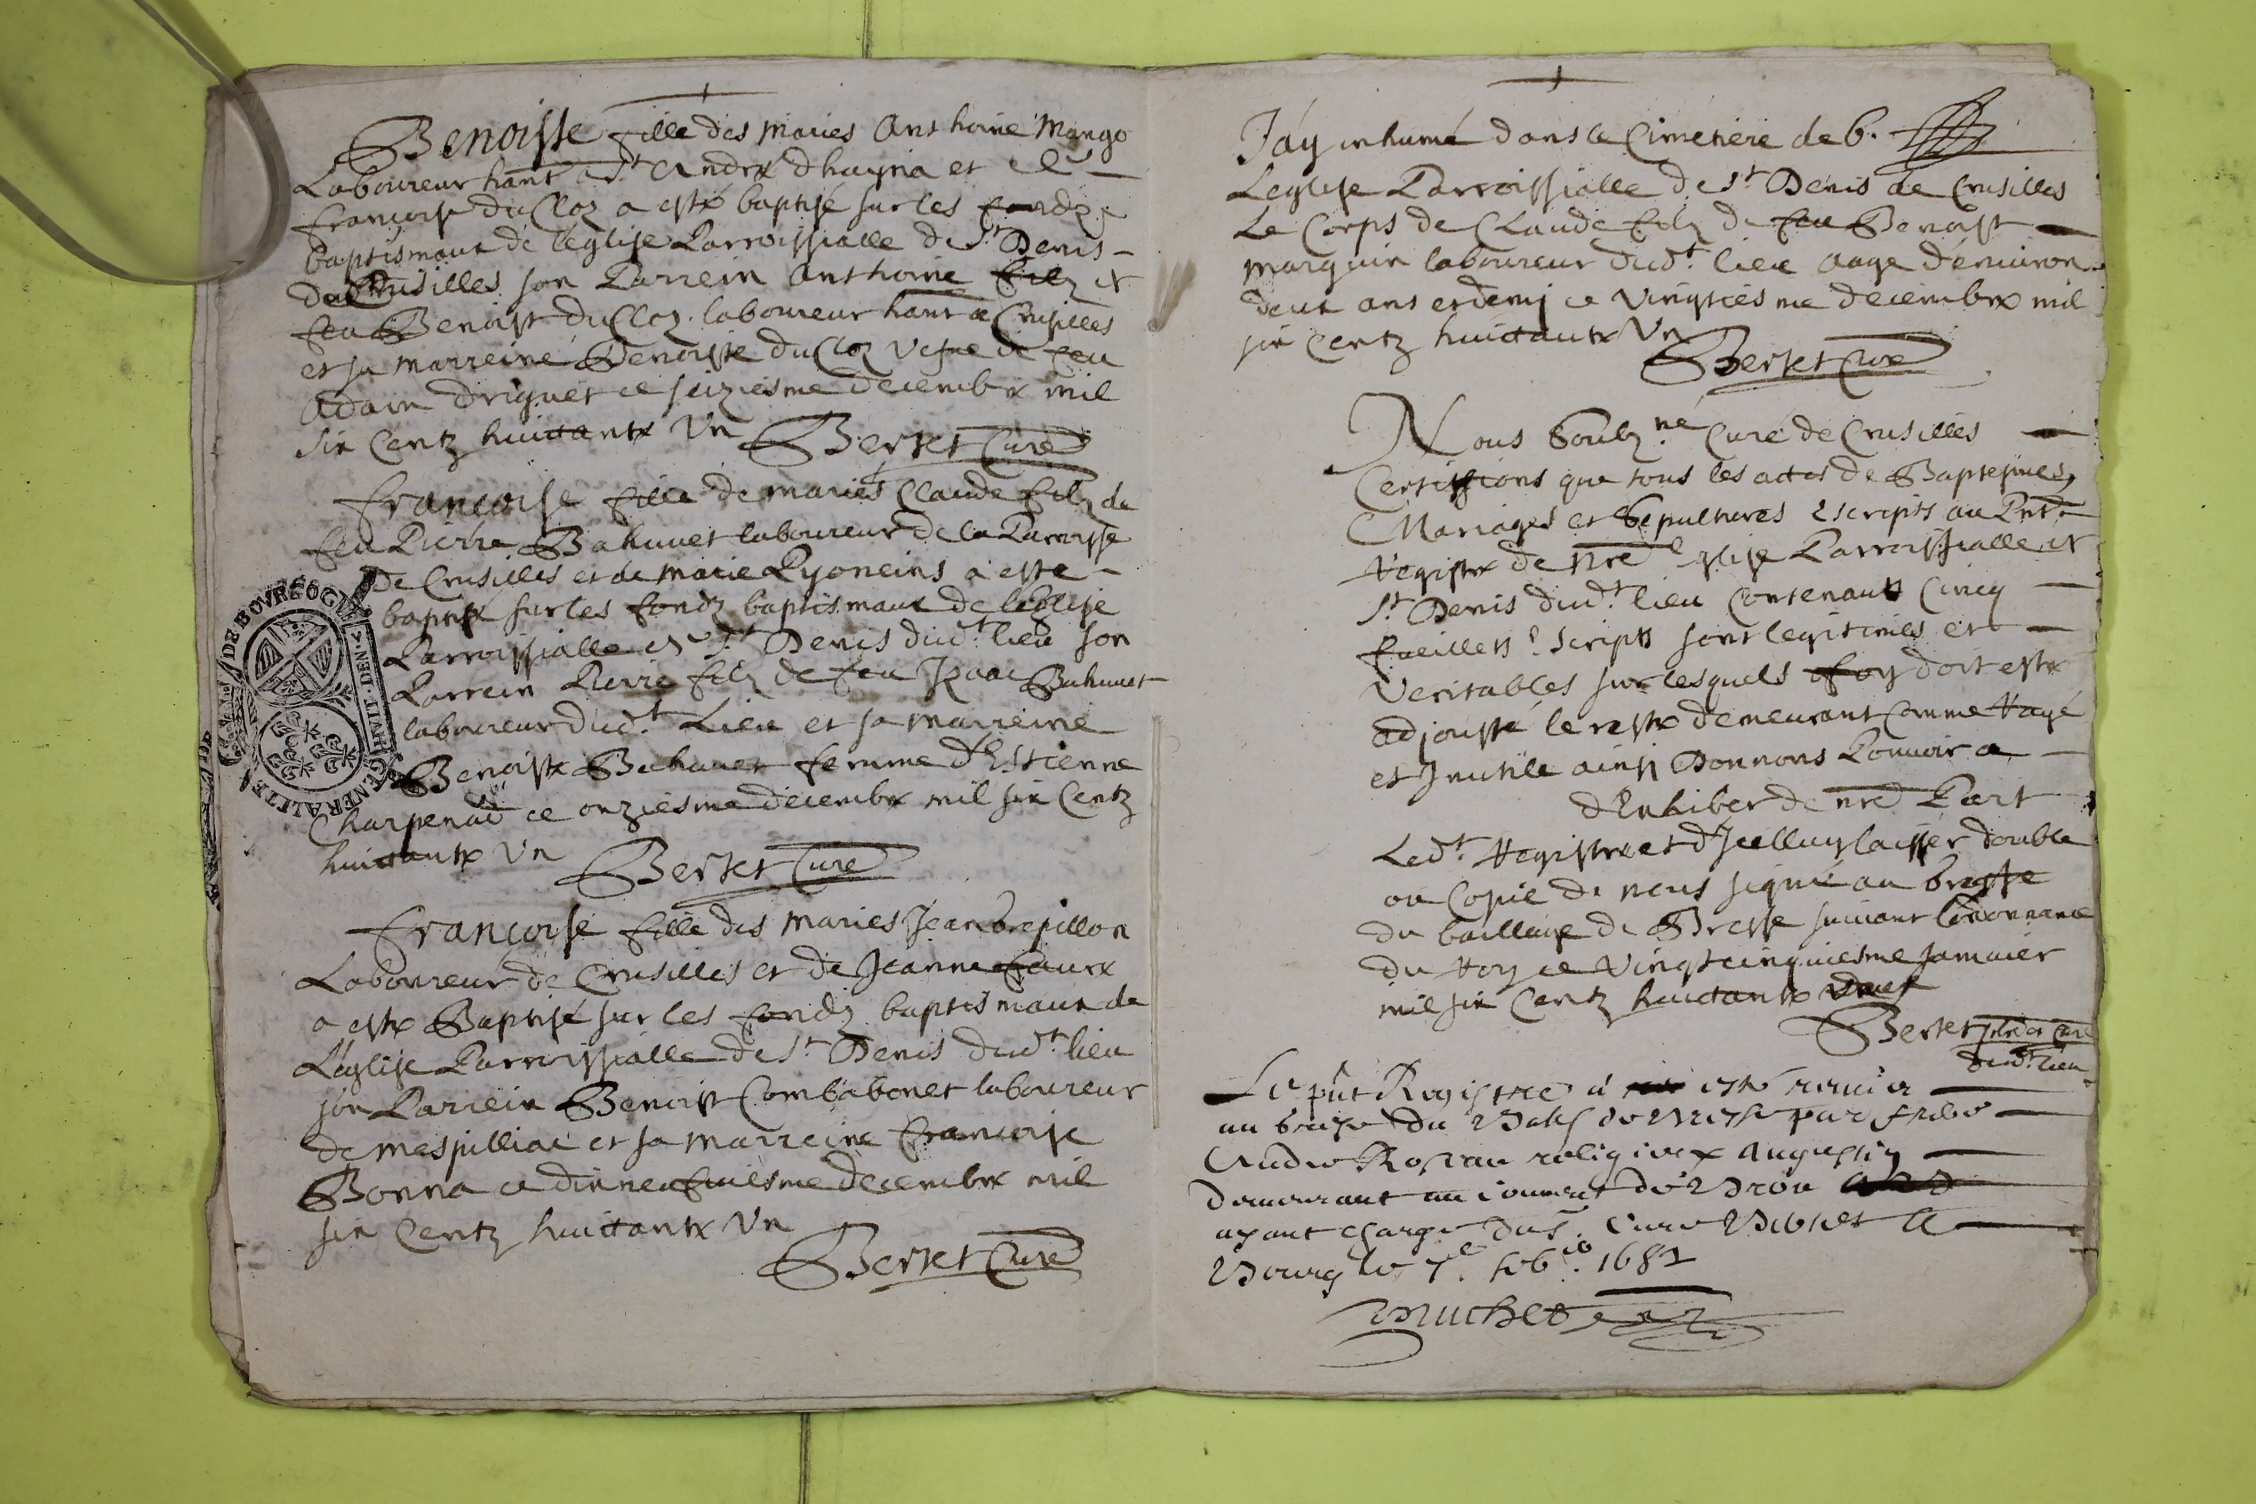 Benoisse fille des maries Anthoine Mango
Laboureur hant a St Andrx dhuyria et de
francoise du Cloz a estx baptisé sur les fondz
baptismaux de l'eglise Parroissialle de St Denis
de Crusilles son Parrein Anthoine filz de
feu Benoist du Cloz laboureur hant a Crusilles
et sa marreine Benoiste du Cloz vefue de feu
Adam driguet ce seiziesme decembrx mil
six Centz huictantx Vn Bertet Curé
francoise fille de maries Claude filz de
feu Pierre Bahuuet laboureur de la Parroisse
De Crusilles et de marie Lyoneins a este
baptisé sur les fondz baptismaux de leglise
Parroissialle de St Denis dudt lieu son
Parrein Pierre filz de feu Isaac Bahuuet
laboureur dudt Lieu et sa marreine
Benoistx Bahuuet femme d'Estienne
Charpenad ce onziesme decembrx mil six Centz
huictantx Vn Bertet Curé
francoise fille des maries Jean brepillon
Laboureur de Crusilles et de Jeanne faurx
a estx Baptisé sur les fondz baptismaux de
L'eglise Parroissialle de St Denis dudt lieu
son Parrein Benoist Combabonet laboureur
de mespilliac et sa marreine francoise
Bonna ce dixneufuiesme decembrx mil
six Centz huictantx Vn
Bertet Curé
GENERALITE DE BOVRGOGNE
HVIT DEN.
J'ay inhumé dans le Cimetiere de b.
Leglise Parroissialle de St Denis de Crusilles
Le Corps de Claude filz de feu Benoist
marguin laboureur dudt lieu aage d'enuiron
deux ans et demj ce vingtiesme decembrx mil
six Centz huictantx Vn
Bertet Curé
Nous Soubzné Curé de Crusilles
Certiffions que tous les actes de Baptesmes,
Mariages et Sepultures escripts au Pnt
Registrx de nre Eglise Parroissialle de
St Denis dudt lieu Contenant Cincq
fueillets escripts sont legitimes et
Veritables sur lesquels foy doit estrx
adjousté le restx demeurant comme Rayé
et Inutile ainsj Donnons Pouuoir a
d'Exhiber de nre Part
Ledt Registrx et d'Icelluy laisser double
ou Copie de nous signée au greffe
du bailliage de Bresse suiuant Lordonnance
du Roy ce Vingtcinquiesme januier
mil six Centz huictantx
Bertet Curé
dudt lieu
Le pnt Registre a esté remis
au greffe du Baill de Bresse par frere
Andre Rossan religieux Augustin
demeurant au couuent de Brou
ayant charge dudt Curé Bertet A
Bourg le 7e feb